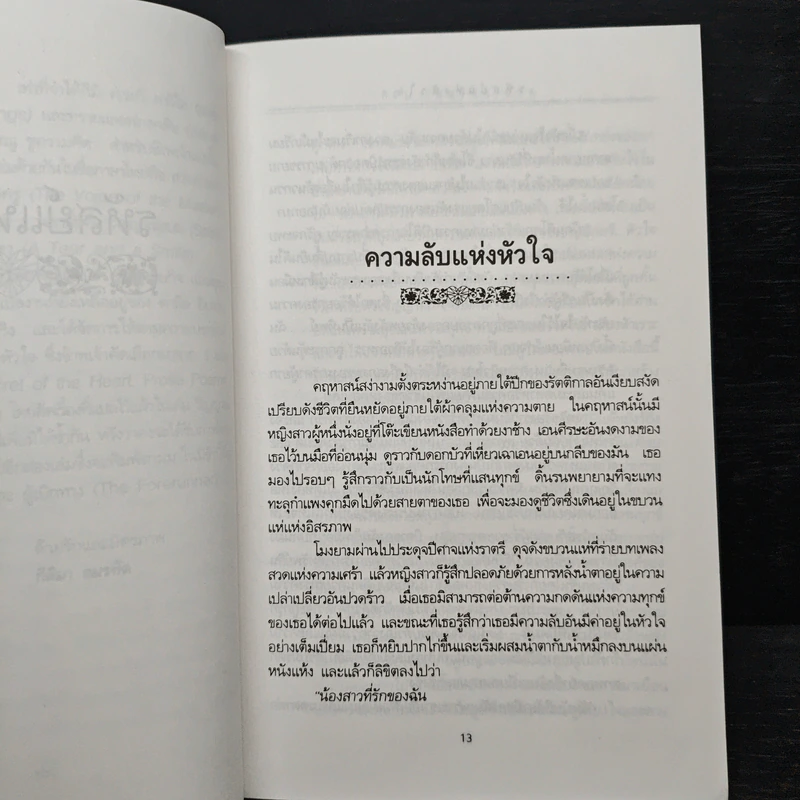 ความลับแห่งหัวใจ
คฤหาสน์สง่างามตั้งตระหง่านอยู่ภายใต้ปีกของรัตติกาลอันเงียบสงัด
เปรียบดังชีวิตที่ยืนหยัดอยู่ภายใต้ผ้าคลุมแห่งความตาย ในคฤหาสน์นั้นมี
หญิงสาวผู้หนึ่งนั่งอยู่ที่โต๊ะเขียนหนังสือทำด้วยงาช้าง เอนศีรษะอันงดงามของ
เธอไว้บนมือที่อ่อนนุ่ม ดูราวกับดอกบัวที่เหี่ยวเฉาเอนอยู่บนกลีบของมัน เธอ
มองไปรอบๆ รู้สึกราวกับเป็นนักโทษที่แสนทุกข์ ดิ้นรนพยายามที่จะแทง
ทะลุกำแพงคุกมืดไปด้วยสายตาของเธอ เพื่อจะมองดูชีวิตซึ่งเดินอยู่ในขบวน
แห่แห่งอิสรภาพ
โมงยามผ่านไปประดุจปีศาจแห่งราตรี ดุจดังขบวนแห่ที่ร่ายบทเพลง
สวดแห่งความเศร้า แล้วหญิงสาวก็รู้สึกปลอดภัยด้วยการหลั่งน้ำตาอยู่ในความ
เปล่าเปลี่ยวอันปวดร้าว เมื่อเธอมิสามารถต่อต้านความกดดันแห่งความทุกข์
ของเธอได้ต่อไปแล้ว และขณะที่เธอรู้สึกว่าเธอมีความลับอันมีค่าอยู่ในหัวใจ
อย่างเต็มเปี่ยม เธอก็หยิบปากไก่ขึ้นและเริ่มผสมน้ำตากับน้ำหมึกลงบนแผ่น
หนังแห้ง และแล้วก็ลิขิตลงไปว่า
"น้องสาวที่รักของฉัน
13